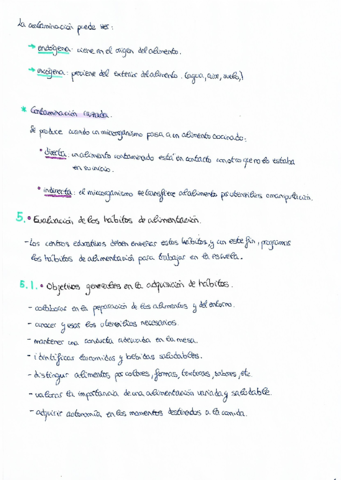 La contaminación puede ser:
→ endógena: viene en el origen del alimento.
→ exógena: proviene del exterior del alimento. (agua, aire, suelo,)
* Contaminación cruzada.
Se produce cuando un microorganismo pasa a un alimento cocinado:
* directa: un alimento contaminado está en contacto con otro que no lo estaba
en su inicio.
* indirecta: el microorganismo se transfiere al alimento por utensilios o manipulación.
5. • Evaluación de los hábitos de alimentación.
- Los centros educativos deben enseñar estos hábitos, y con este fin, programas
los hábitos de alimentación para trabajar en la escuela.
5.1. • Objetivos generales en la adquisición de hábitos.
- colaborar en la preparación de los alimentos y del entorno.
- conocer y usar los utensilios necesarios.
- mantener una conducta adecuada en la mesa.
- identificar comidas y bebidas saludables.
- distinguir alimentos, por colores, formas, texturas, sabores, etc
- valorar la importancia de una alimentación variada y saludable.
- adquirir autonomía en los momentos destinados a la comida.